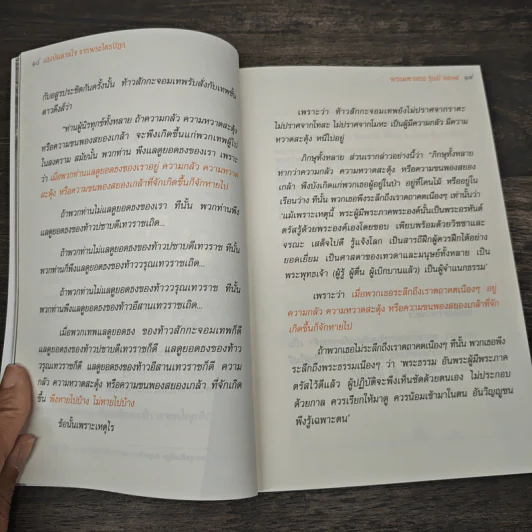 ๑๘ แรงบันดาลใจ จากพระไตรปิฎก
กับอสูรประชิดกันครั้งนั้น ท้าวสักกะจอมเทพรับสั่งกับเทพชั้น
ดาวดึงส์ว่า
"ท่านผู้นิรทุกข์ทั้งหลาย ถ้าความกลัว ความหวาดสะดุ้ง
หรือความขนพองสยองเกล้า จะพึงเกิดขึ้นแก่พวกเทพผู้ไป
ในสงคราม สมัยนั้น พวกท่าน พึงแลดูยอดธงของเรา เพราะ
ว่า เมื่อพวกท่านแลดูยอดธงของเราอยู่ ความกลัว ความหวาด
สะดุ้ง หรือความขนพองสยองเกล้าที่จักเกิดขึ้นก็จักหายไป
ถ้าพวกท่านไม่แลดูยอดธงของเรา ทีนั้น พวกท่านพึง
แลดูยอดธงของท้าวปชาบดีเทวราชเถิด...
ถ้าพวกท่านไม่แลดูยอดธงของท้าวปชาบดีเทวราช ทีนั้น
พวกท่านก็พึงแลดูยอดธงของท้าววรุณเทวราชเถิด...
ถ้าพวกท่านไม่แลดูยอดธงของท้าววรุณเทวราช ทีนั้น
พวกท่านพึงแลดูยอดธงของท้าวอีสานเทวราชเถิด...
เมื่อพวกเทพแลดูยอดธง ของท้าวสักกะจอมเทพก็ดี
แลดูยอดธงของท้าวปชาบดีเทวราชก็ดี แลดูยอดธงของท้าวว
รุณเทวราชก็ดี แลดูยอดธงของท้าวอีสานเทวราชก็ดี ความ
กลัว ความหวาดสะดุ้ง หรือความขนพองสยองเกล้า ที่จักเกิด
ขึ้น พึงหายไปบ้าง ไม่หายไปบ้าง
ข้อนั้นเพราะเหตุไร
๑๙
เพราะว่า ท้าวสักกะจอมเทพยังไม่ปราศจากราคะ
ไม่ปราศจากโทสะ ไม่ปราศจากโมหะ เป็นผู้มีความกลัว มีความ
หวาดสะดุ้ง หนีไปอยู่
ภิกษุทั้งหลาย ส่วนเรากล่าวอย่างนี้ว่า "ภิกษุทั้งหลาย
หากว่าความกลัว ความหวาดสะดุ้ง หรือความขนพองสยอง
เกล้า พึงบังเกิดแก่พวกเธอผู้อยู่ในป่า อยู่ที่โคนไม้ หรืออยู่ใน
เรือนว่าง ทีนั้น พวกเธอพึงระลึกถึงเราตถาคตเนืองๆ เท่านั้นว่า
'แม้เพราะเหตุนี้ พระผู้มีพระภาคพระองค์นั้นเป็นพระอรหันต์
ตรัสรู้ด้วยพระองค์เองโดยชอบ เพียบพร้อมด้วยวิชชาและ
จรณะ เสด็จไปดี รู้แจ้งโลก เป็นสารถีฝึกผู้ควรฝึกได้อย่าง
ยอดเยี่ยม เป็นศาสดาของเทวดาและมนุษย์ทั้งหลาย เป็น
พระพุทธเจ้า (ผู้รู้ ผู้ตื่น ผู้เบิกบานแล้ว) เป็นผู้จำแนกธรรม'
เพราะว่า เมื่อพวกเธอระลึกถึงเราตถาคตเนืองๆ อยู่
ความกลัว ความหวาดสะดุ้ง หรือความขนพองสยองเกล้าที่จัก
เกิดขึ้นก็จักหายไป
ถ้าพวกเธอไม่ระลึกถึงเราตถาคตเนืองๆ ทีนั้น พวกเธอพึง
ระลึกถึงพระธรรมเนืองๆ ว่า 'พระธรรม อันพระผู้มีพระภาค
ตรัสไว้ดีแล้ว ผู้ปฏิบัติจะพึงเห็นชัดด้วยตนเอง ไม่ประกอบ
ด้วยกาล ควรเรียกให้มาดู ควรน้อมเข้ามาในตน อันวิญญูชน
พึงรู้เฉพาะตน'